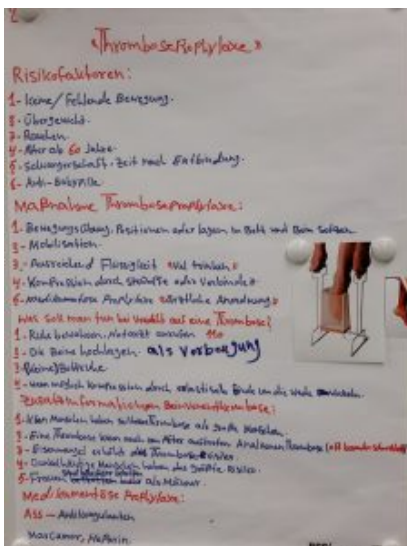 «ThromboseProphylaxe»
Risikofaktoren:
1- Keine/Fehlende Bewegung.
2- Übergewicht.
3- Rauchen.
4- Alter ab 60 Jahre.
5- Schwangerschaft. Zeit nach Entbindung.
6- Anti-Babypille
Maßnahme Thromboseprophylaxe:
1. Bewegungsübung. Positionen oder lagern im Bett und Beim
2- Mobilisation.
3- Ausreichend Flüssigkeit «viel trinken»
4- Kompression durch Strümpfe oder
5- Medikamentöse Prophylaxe «ärztliche Anordnung»
was soll man tun bei Verdacht auf eine Thrombose?
1. Ruhe bewahren, Notarzt anrufen 112
2- Die Beine hochlagern als Vorbeugung
3-
4- wenn möglich Kompression durch elastische Binde um die Wade
Zusatzinformationen Beinvenenthrombose:
1- Klein Menschen haben Thrombose als große Menschen.
2- Eine Thrombose kann auch am After auftreten Analvenenthrombose
3- Eisenmangel erhöht das Thromboserisiko
4- Menschen haben das größte Risiko.
5- Frauen mehr als Männer.
Medikamentöse Prophylaxe:
ASS - Antikoagulanten
Marcumar, Heparin.